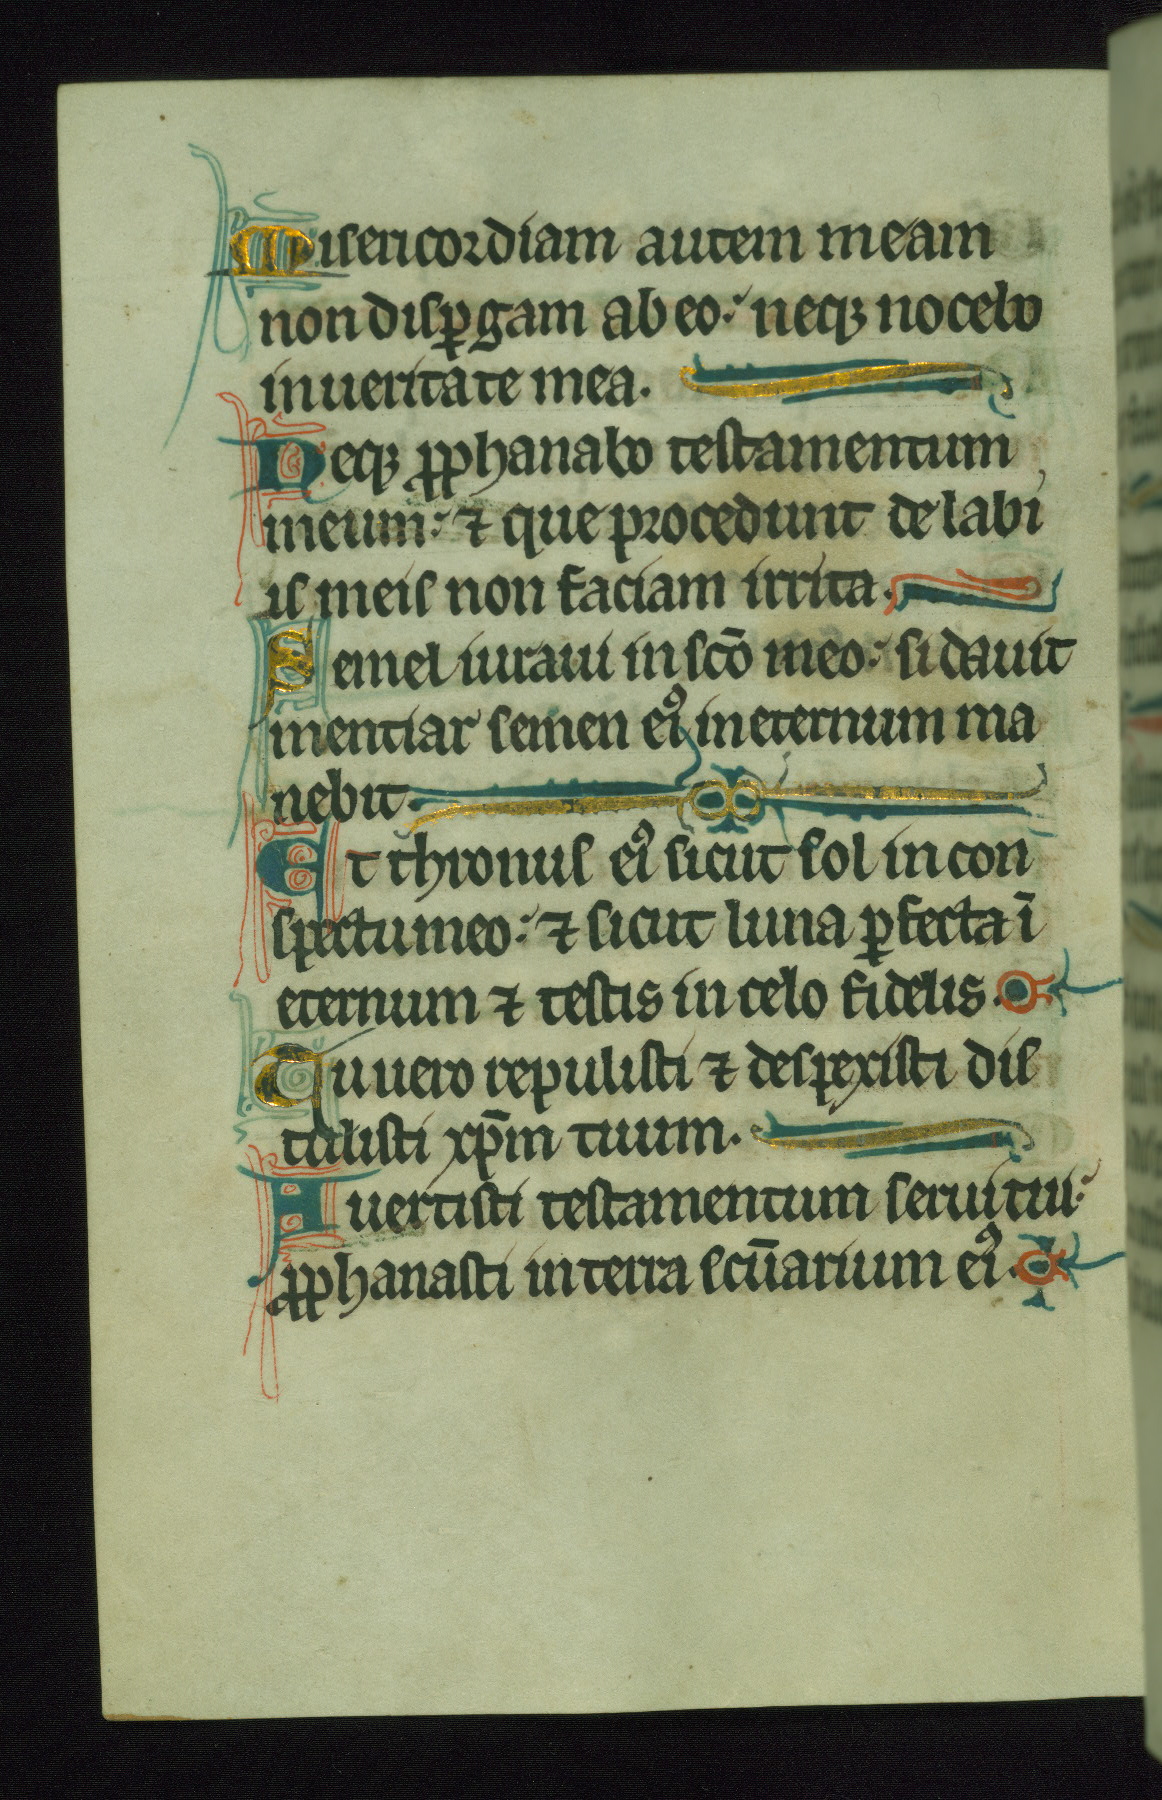 Misericordiam autem meam
non disꝑgam ab eo. neqꝫ nocebo
in ueritate mea.
Neqꝫ ꝓphanabo testamentum
meum. ⁊ que procedunt de labi
is meis non faciam irrita.
Semel iuraui in sc̄o meo. si dauit
mentiar semen ei᷒ in eternum ma
nebit.
Et thronus ei᷒ sicut sol in con
spectu meo. ⁊ sicut luna ꝑfecta ī
eternum ⁊ testis in celo fidelis.
Tu uero repulisti ⁊ despexisti dis
tulisti xp̄m tuum.
Auertisti testamentum serui tui.
ꝓphanasti in terra scūarium ei᷒.